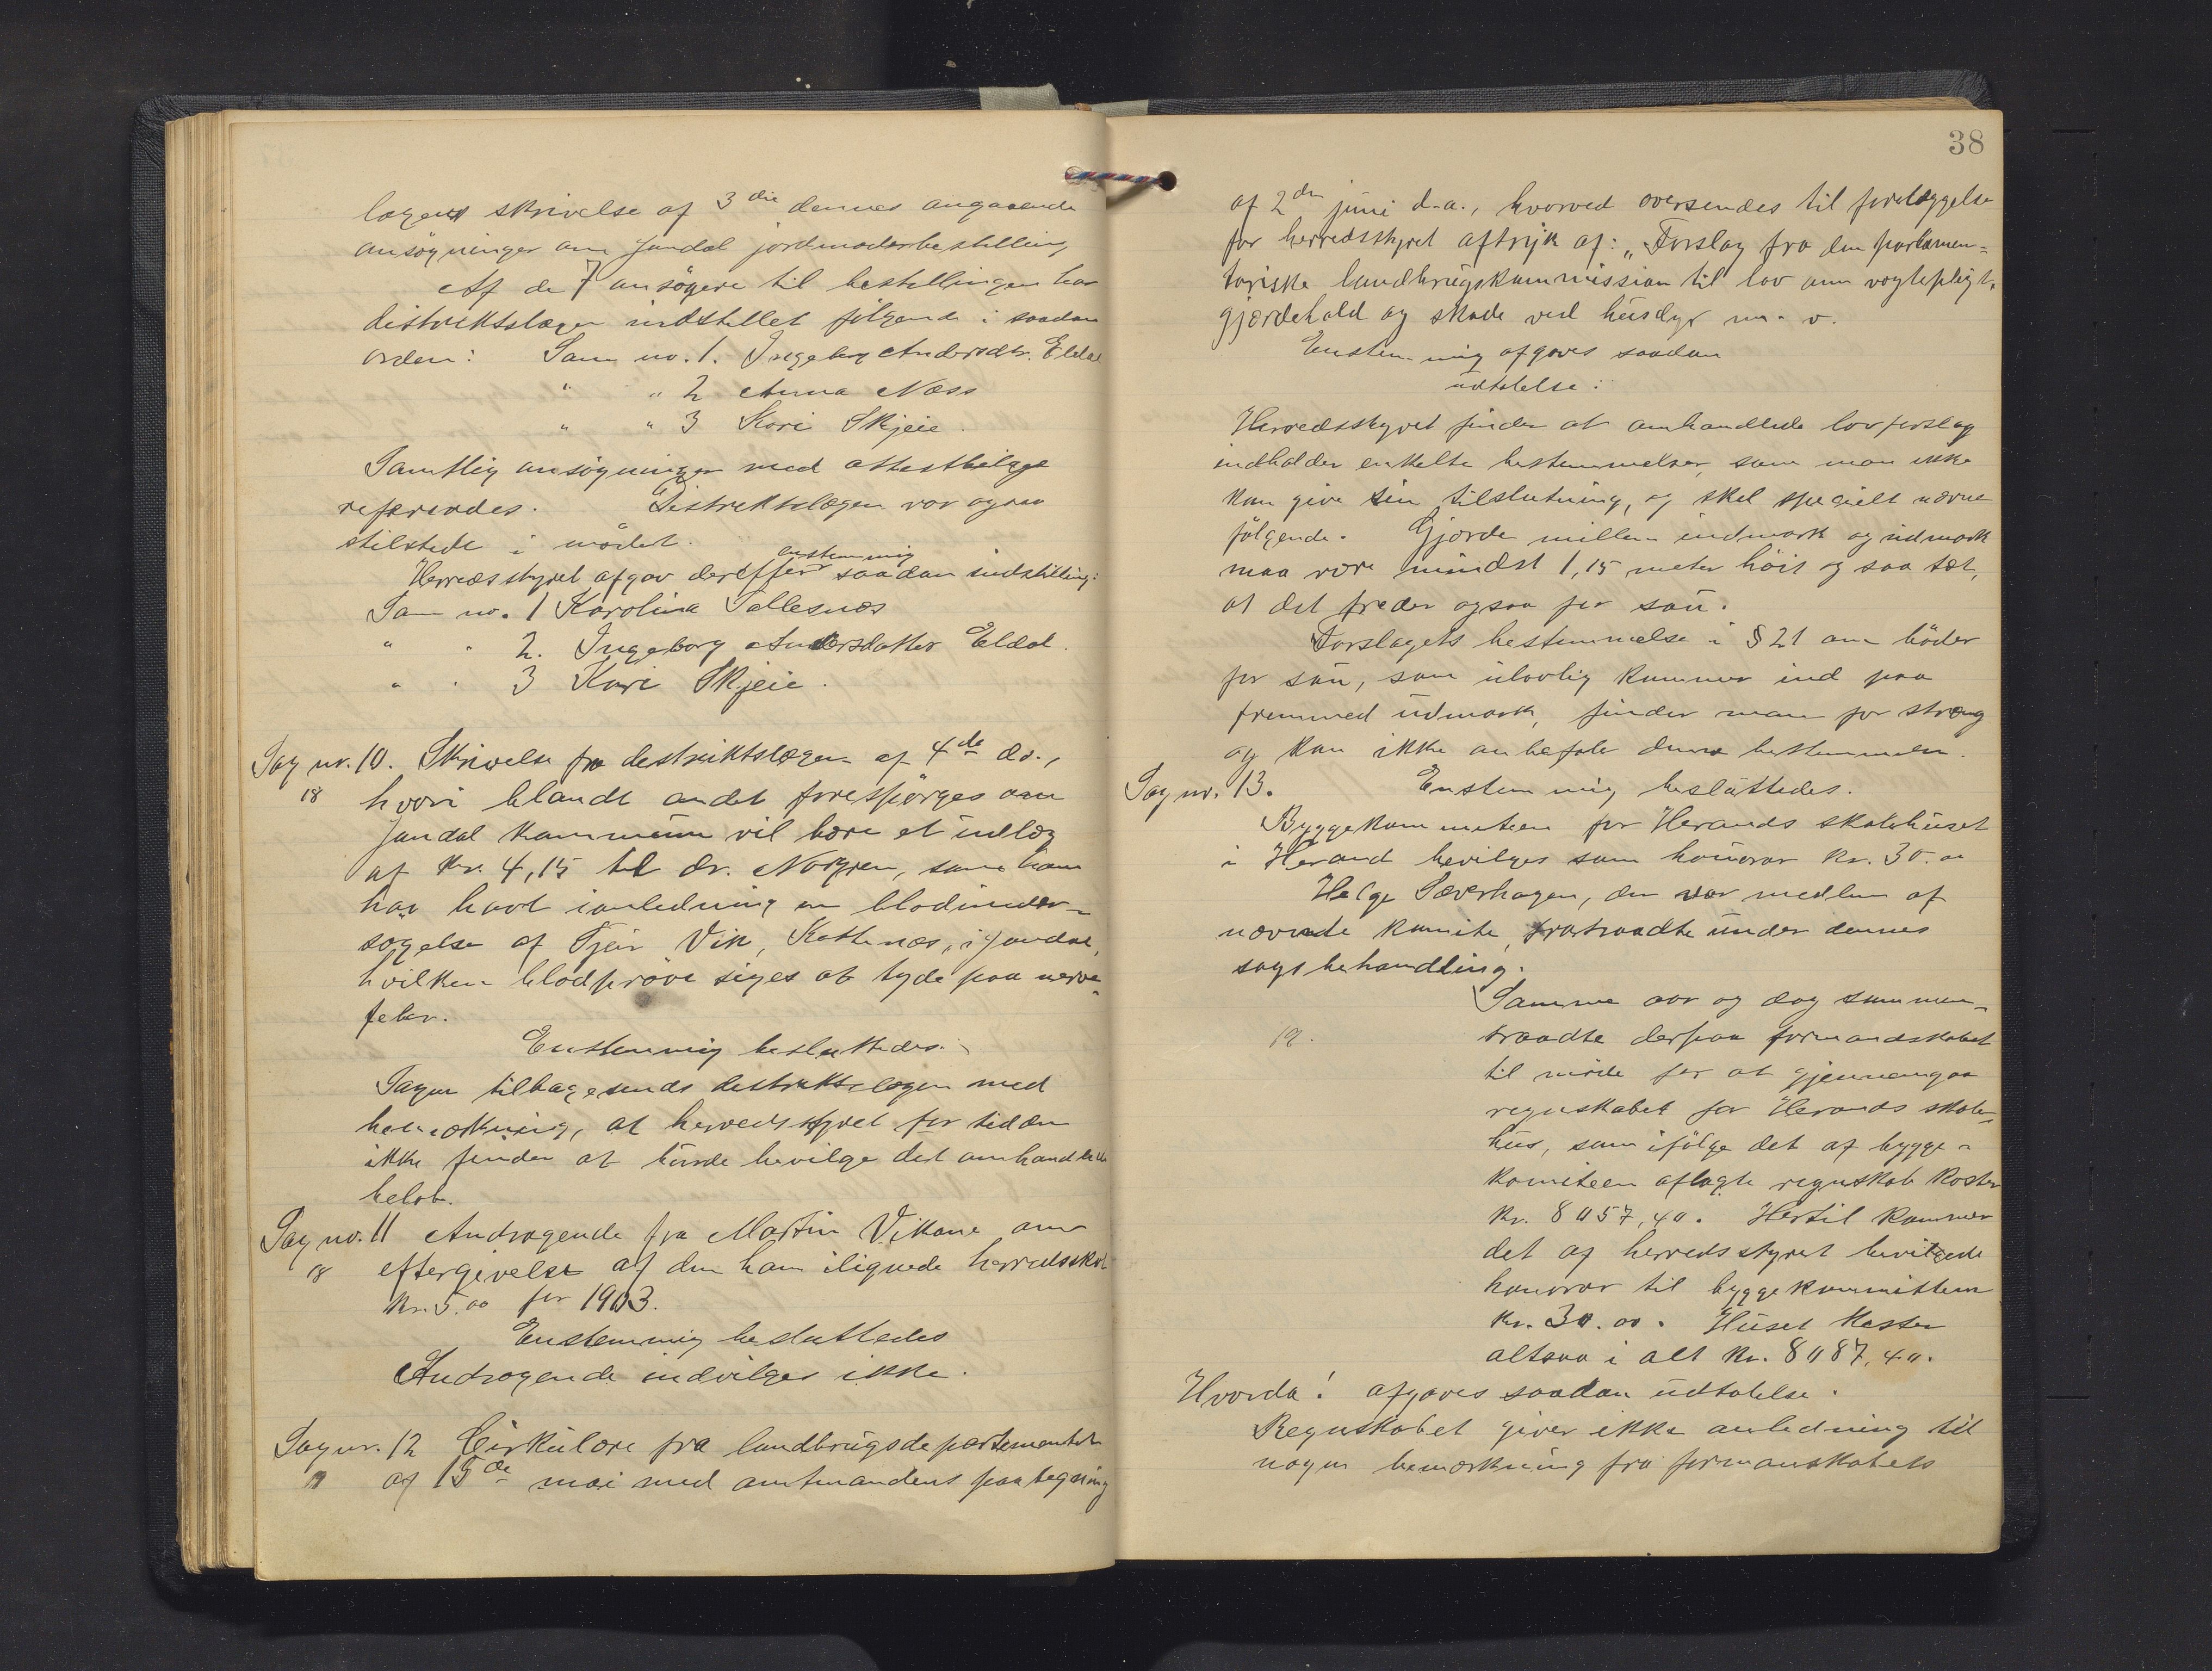 lægens skrivelse af 3die dennes angaaende
ansøgninger om Jondal jordmoderbestilling
Af de 7 ansøgere til bestillingen har
distriktslægen indstillet følgende i saadan
orden: Som no. 1. Ingeborg Andersdtr. Eldal
" " 2 Anna Næss
" " 3 Kari Skjeie.
Samtlig ansøgninger med attestbilage
refererdes. Distriktslægen var ogsaa
tilstede i mødet.
enstemmig
Herredsstyret afgav derefter saadan indstilling:
Som no. 1 Karolina Sollesnæs
" " 2. Ingeborg Andersdatter Eldal.
" " 3 Kari Skjeie.
Sag nr. 10. Skrivelse fra destriktslægen af 4de ds.,
18 hvori blandt andet forespørges om
Jondal kommune vil bære et utlæg
af kr. 4,15 til dr. Norgren, som han
har havt i anledning en blodunder-
søgelse af Geir Vik, Kattenæs, i Jondal,
hvilken blodprøve siges at tyde paa nerve-
feber.
Enstemmig besluttedes:
Sagen tilbagesends destriktslægen med
bemærkning, at herredsstyret for tiden
ikke finder at burde bevilge det omhandlede
beløb.
Sag no. 11 Andragende fra Martin Vikane om
18 eftergivelse af den ham ilignede herredsskat
kr. 5.00 for 1903.
Enstemmig besluttedes
Andragende indvilges ikke.
Sag nr. 12 Cirkulære fra landbrugsdepartementet
af 15de mai med amtmandens paategning
38
af 2den juni d.a., hvorved oversendes til forelæggelse
for herredsstyret aftryk af: „Forslag fra den parlamen-
tariske landbrugskommission til lov om vogtepligt,
gjærdehold og skade ved husdyr m. v.
Enstemmig afgaves saadan
udtalelse:
Herredsstyret finder at omhandlede lovforslag
indholder enkelte bestemmelser, som man ikke
kan give sin tilslutning, og skal specielt nævne
følgende. Gjærde mellem indmark og udmark
maa være mindst 1,15 meter høit og saa tæt,
at det freder ogsaa for sau.
Forslagets bestemmelse i § 21 om bøder
for sau, som ulovlig kommer ind paa
fremmed udmark, finder man for stræng
og kan ikke anbefale denne bestemmelse.
Sag nr. 13. Enstemmig besluttedes.
Byggekommiteen for Herands skolehuset
i Herand bevilges som honorar kr. 30.00
Helge Sæverhagen, der var medlem af
nævnte komite, fratraadte under dennes
sags behandling.
Samme aar og dag sammen-
19. traadte derpaa formandskabet
til møde for at gjennemgaa
regnskabet for Herands skole-
hus, som ifølge det af bygge-
komiteen aflagte regnskab koster
kr. 8057,40. Hertil kommer
det af herredsstyret bevilgede
honorar til byggekommitteen
kr. 30.00. Huset koster
altsaa i alt kr. 8087,40.
Hvorda! afgaves saadan udtalelse.
Regnskabet giver ikke anledning til
nogen bemærkning fra formanskabets